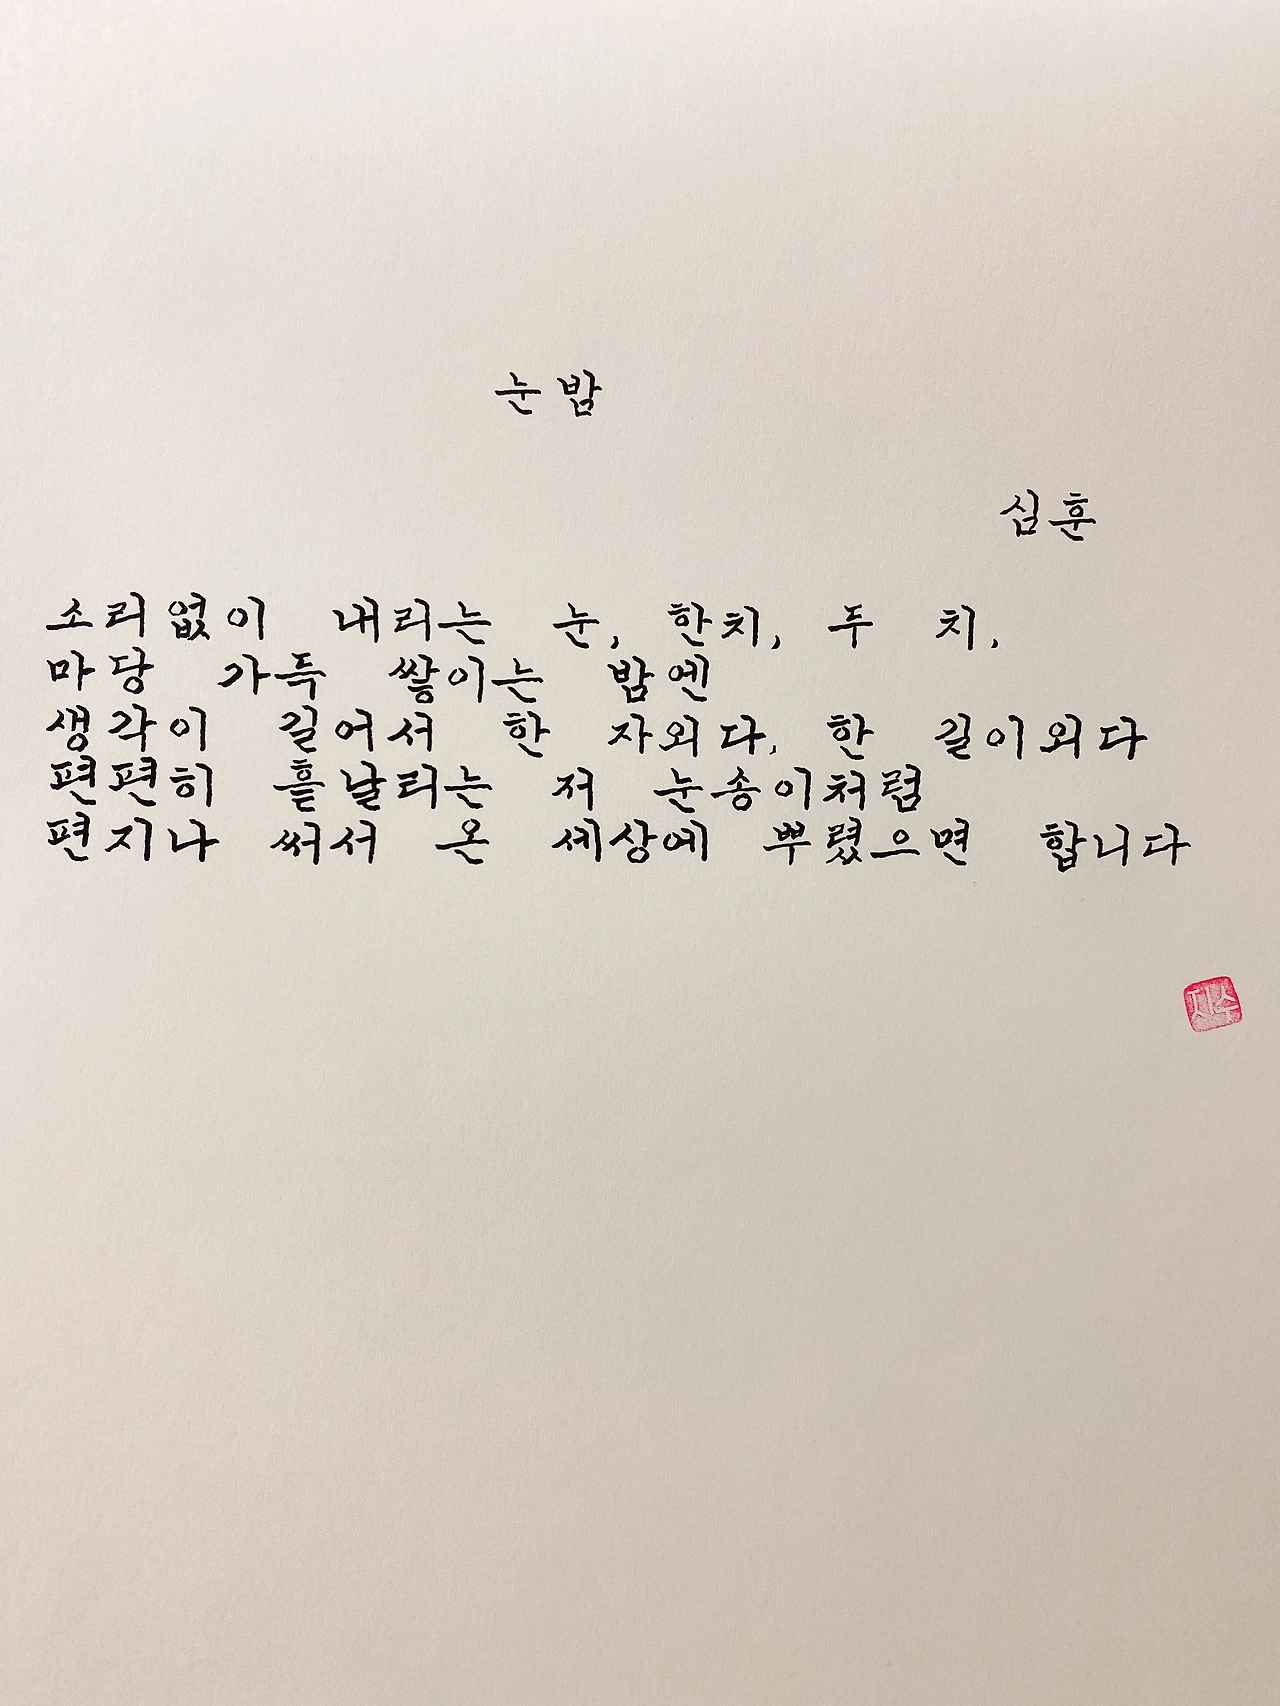 눈밤
심훈
소리없이 내리는 눈, 한치, 두 치,
마당 가득 쌓이는 밤엔
생각이 길어서 한 자외다, 한 길이외다
편편히 흩날리는 저 눈송이처럼
편지나 써서 온 세상에 뿌렸으면 합니다
지수